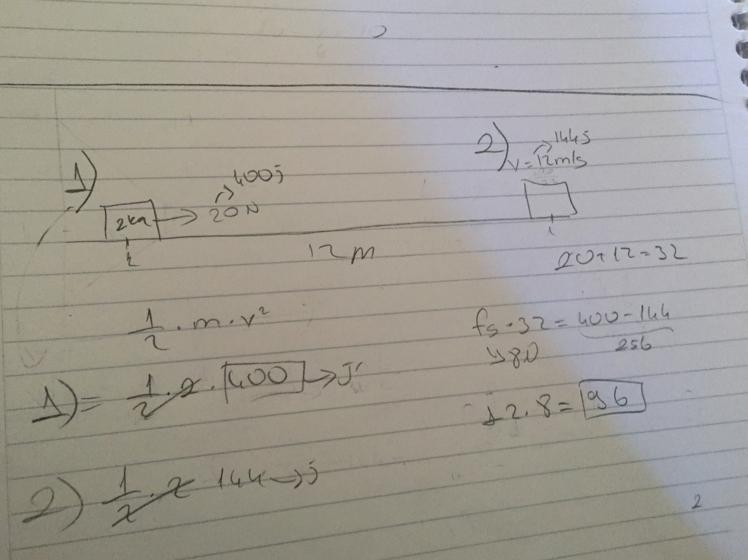 1)
400j
2kg → 20N
12m
2)
144j
V = 12m/s
20+12=32
1/2 · m · v²
fs · 32 = 400 - 144
256
1) = 1/2 · 2 · 400 → J
12.8 = 96
2) 1/2 · 2 144 → j
2